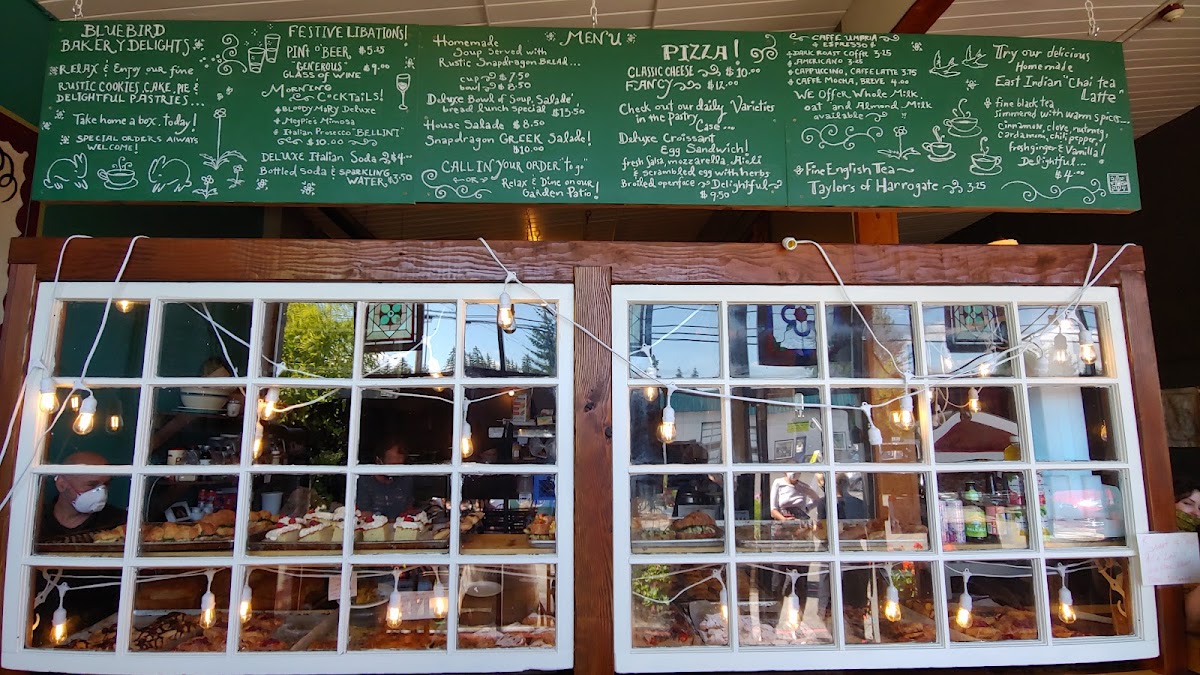 BLUEBIRD
BAKERY DELIGHTS
RELAX & Enjoy our fine
RUSTIC COOKIES, CAKE, PIE &
DELIGHTFUL PASTRIES...
Take home a box, today!
SPECIAL ORDERS ALWAYS
WELCOME!
FESTIVE LIBATIONS!
PINT O'BEER, $5.25
"GENEROUS"
GLASS OF WINE $9.00
MORNING
COCKTAILS!
BLOODY MARY Deluxe
Megpie's Mimosa
Italian Prosecco "BELLINI"
$10.00
DELUXE Italian Soda
Bottled soda & SPARKLING
WATER $3.50
MENU
Homemade
Soup Served with
Rustic Snapdragon BREAD...
cup $7.50
bowl $8.50
Deluxe Bowl of Soup, Salad &
bread lunch special $13.50
House Salade $8.50
Snapdragon GREEK Salade!
$10.00
CALL IN your ORDER "to go"
OR
Relax & Dine on our
Garden Patio!
PIZZA!
CLASSIC CHEESE $10.00
FANCY $12.00
Check out our daily Varieties
in the Pastry
Case...
Deluxe Croissant
Egg Sandwich!
fresh Salsa, mozzarella, Aioli
& scrambled egg with herbs
Broiled openface Delightful
$9.50
CAFFE UMBRIA
ESPRESSO
DARK ROAST COFFE 3.25
AMERICANO 3.25
CAPPUCCINO, CAFFE LATTE 3.75
CAFFÈ MOCHA, BREVE 4.00
WE OFFER Whole Milk,
oat and Almond Milk
available
Fine English Tea
Taylors of Harrogate 3.25
Try our delicious
Homemade
East Indian "Chai tea
Latte"
fine black tea
simmered with warm spices...
cinnamon, clove, nutmeg,
Cardamum, chili pepper,
fresh ginger & Vanilla!
Delightful...
$4.00